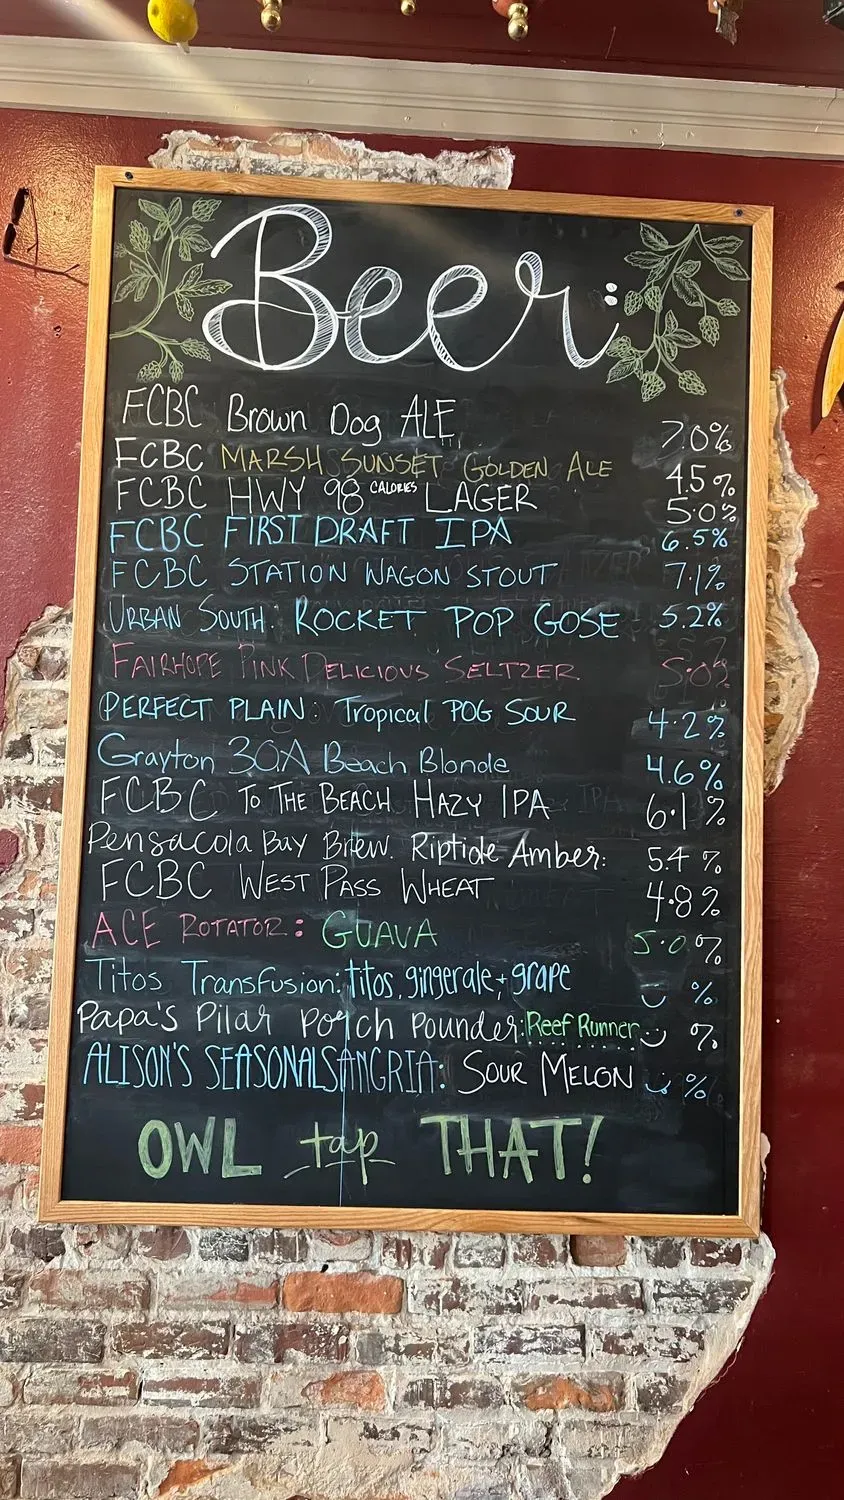 Beer:
FCBC Brown Dog ALE 7.0%
FCBC MARSH SUNSET GOLDEN ALE 4.5%
FCBC HWY 98 CALORIES LAGER 5.0%
FCBC FIRST DRAFT IPA 6.5%
FCBC STATION WAGON STOUT 7.1%
URBAN SOUTH: ROCKET POP GOSE 5.2%
FAIRHOPE PINK DELICIOUS SELTZER 5.0%
PERFECT PLAIN: Tropical POG SOUR 4.2%
Grayton 30A Beach Blonde 4.6%
FCBC TO THE BEACH HAZY IPA 6.1%
Pensacola Bay Brew. Riptide Amber: 5.4%
FCBC WEST PASS WHEAT 4.8%
ACE ROTATOR: GUAVA 5.0%
Titos Transfusion: titos, gingerale + grape %
Papa's Pilar Porch Pounder: Reef Runner %
ALISON'S SEASONAL SANGRIA: SOUR MELON %
OWL tap THAT!